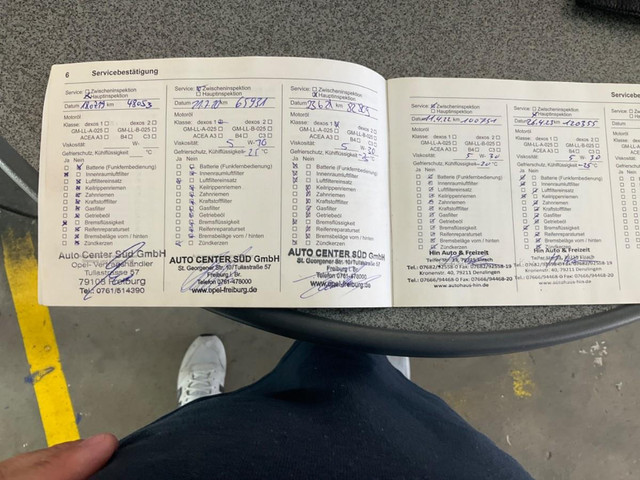 6 Servicebestätigung
Service: Zwischeninspektion
Hauptinspektion
Datum 18.07.19 km 43053
Motoröl
Klasse: dexos 1 dexos 2
GM-LL-A-025 GM-LL-B-025
ACEA A3 B4 C3
Viskosität: W-
Gefrierschutz, Kühlflüssigkeit: °C
Ja Nein
Batterie (Funkfernbedienung)
Innenraumluftfilter
Luftfiltereinsatz
Keilrippenriemen
Zahnriemen
Kraftstofffilter
Gasfilter
Getriebeöl
Bremsflüssigkeit
Reifenreparaturset
Bremsbeläge vorn / hinten
Zündkerzen
Auto Center Süd GmbH
Opel-Vertragshändler
Tullastrasse 57
79108 Freiburg
Tel. 0761/514390
Service: Zwischeninspektion
Hauptinspektion
Datum km 65951
Motoröl
Klasse: dexos 1 dexos 2
GM-LL-A-025 GM-LL-B-025
ACEA A3 B4 C3
Viskosität: 5 W-30
Gefrierschutz, Kühlflüssigkeit: -25 °C
Ja Nein
Batterie (Funkfernbedienung)
Innenraumluftfilter
Luftfiltereinsatz
Keilrippenriemen
Zahnriemen
Kraftstofffilter
Gasfilter
Getriebeöl
Bremsflüssigkeit
Reifenreparaturset
Bremsbeläge vorn / hinten
Zündkerzen
AUTO CENTER SÜD GmbH
St. Georgener Str. 10/Tullastraße 57
Freiburg i. Br.
Telefon 0761-479000
www.opel-freiburg.de
Service: Zwischeninspektion
Hauptinspektion
Datum km
Motoröl
Klasse: dexos 1 dexos 2
GM-LL-A-025 GM-LL-B-025
ACEA A3 B4 C3
Viskosität: 5 W-30
Gefrierschutz, Kühlflüssigkeit:
Ja Nein
Batterie (Funkfernbedienung)
Innenraumluftfilter
Luftfiltereinsatz
Keilrippenriemen
Zahnriemen
Kraftstofffilter
Gasfilter
Getriebeöl
Bremsflüssigkeit
Reifenreparaturset
Bremsbeläge vorn / hinten
Zündkerzen
AUTO CENTER SÜD GmbH
St. Georgener Str. 10/Tullastraße 57
Freiburg i. Br.
Telefon 0761-479000
www.opel-freiburg.de
Service: Zwischeninspektion
Hauptinspektion
Datum km 100751
Motoröl
Klasse: dexos 1 dexos 2
GM-LL-A-025 GM-LL-B-025
ACEA A3 B4 C3
Viskosität: 5 W-30
Gefrierschutz, Kühlflüssigkeit: °C
Ja Nein
Batterie (Funkfernbedienung)
Innenraumluftfilter
Luftfiltereinsatz
Keilrippenriemen
Zahnriemen
Kraftstofffilter
Gasfilter
Getriebeöl
Bremsflüssigkeit
Reifenreparaturset
Bremsbeläge vorn / hinten
Zündkerzen
Hin Auto & Freizeit
Kronenstr. 40, 79211 Denzlingen
Tel.: 07666/94468-0 Fax: 07666/94468-20
www.autohaus-hin.de
Servicebe
Service: Zwischeninspektion
Hauptinspektion
Datum 26.4.23 km 120355
Motoröl
Klasse: dexos 1 dexos 2
GM-LL-A-025 GM-LL-B-025
ACEA A3 B4 C3
Viskosität: 5 W-30
Gefrierschutz, Kühlflüssigkeit: -25 °C
Ja Nein
Batterie (Funkfernbedienung)
Innenraumluftfilter
Luftfiltereinsatz
Keilrippenriemen
Zahnriemen
Kraftstofffilter
Gasfilter
Getriebeöl
Bremsflüssigkeit
Reifenreparaturset
Bremsbeläge vorn / hinten
Zündkerzen
Hin Auto & Freizeit
Kronenstr. 40, 79211 Denzlingen
Tel.: 07666/94468-0 Fax: 07666/94468-20
www.autohaus-hin.de